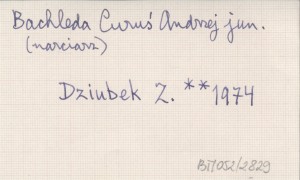 Bachleda Curuś Andrzej jun.
(narciarz)
Dziubek Z. **1974
BJ1052/2829